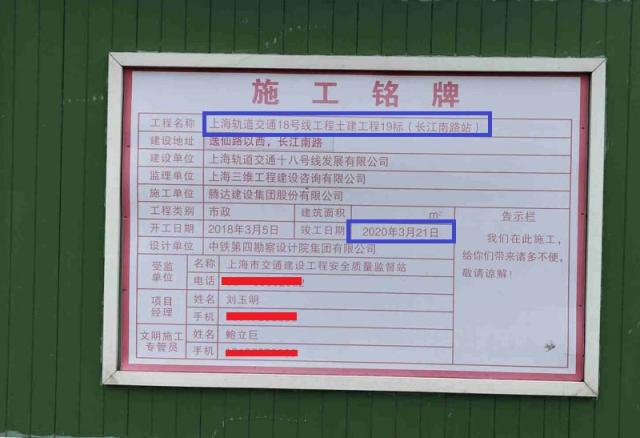 施工铭牌
工程名称 上海轨道交通18号线工程土建工程19标（长江南路站）
建设地址 逸仙路以西，长江南路
建设单位 上海轨道交通十八号线发展有限公司
监理单位 上海三维工程建设咨询有限公司
施工单位 腾达建设集团股份有限公司
工程类别 市政 建筑面积 m²
开工日期 2018年3月5日 竣工日期 2020年3月21日
设计单位 中铁第四勘察设计院集团有限公司
受监单位 名称 上海市交通建设工程安全质量监督站
电话
项目经理 姓名 刘玉明
手机
文明施工专管员 姓名 鲍立巨
手机
告示栏
我们在此施工，
给你们带来诸多不便，
敬请谅解！